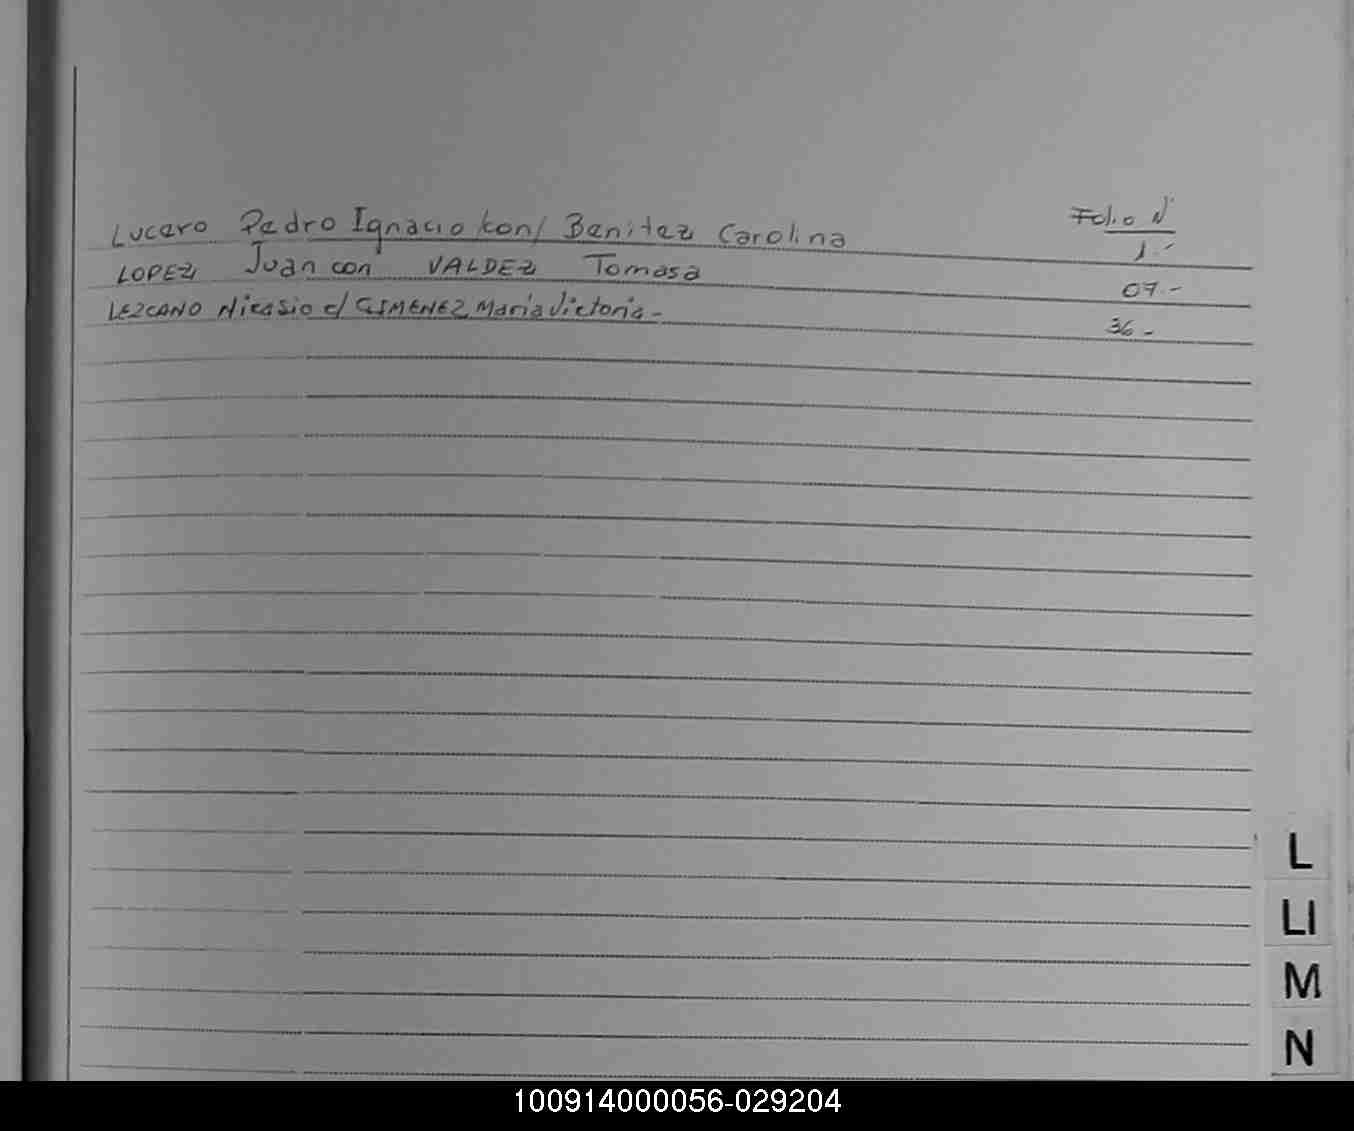 Folio Nº
Lucero Pedro Ignacio con/ Benitez Carolina 1.-
LOPEZ Juan con VALDEZ Tomasa 07.-
LEZCANO Nicasio c/ GIMENEZ Maria Victoria- 36-
L
LI
M
N
100914000056-029204